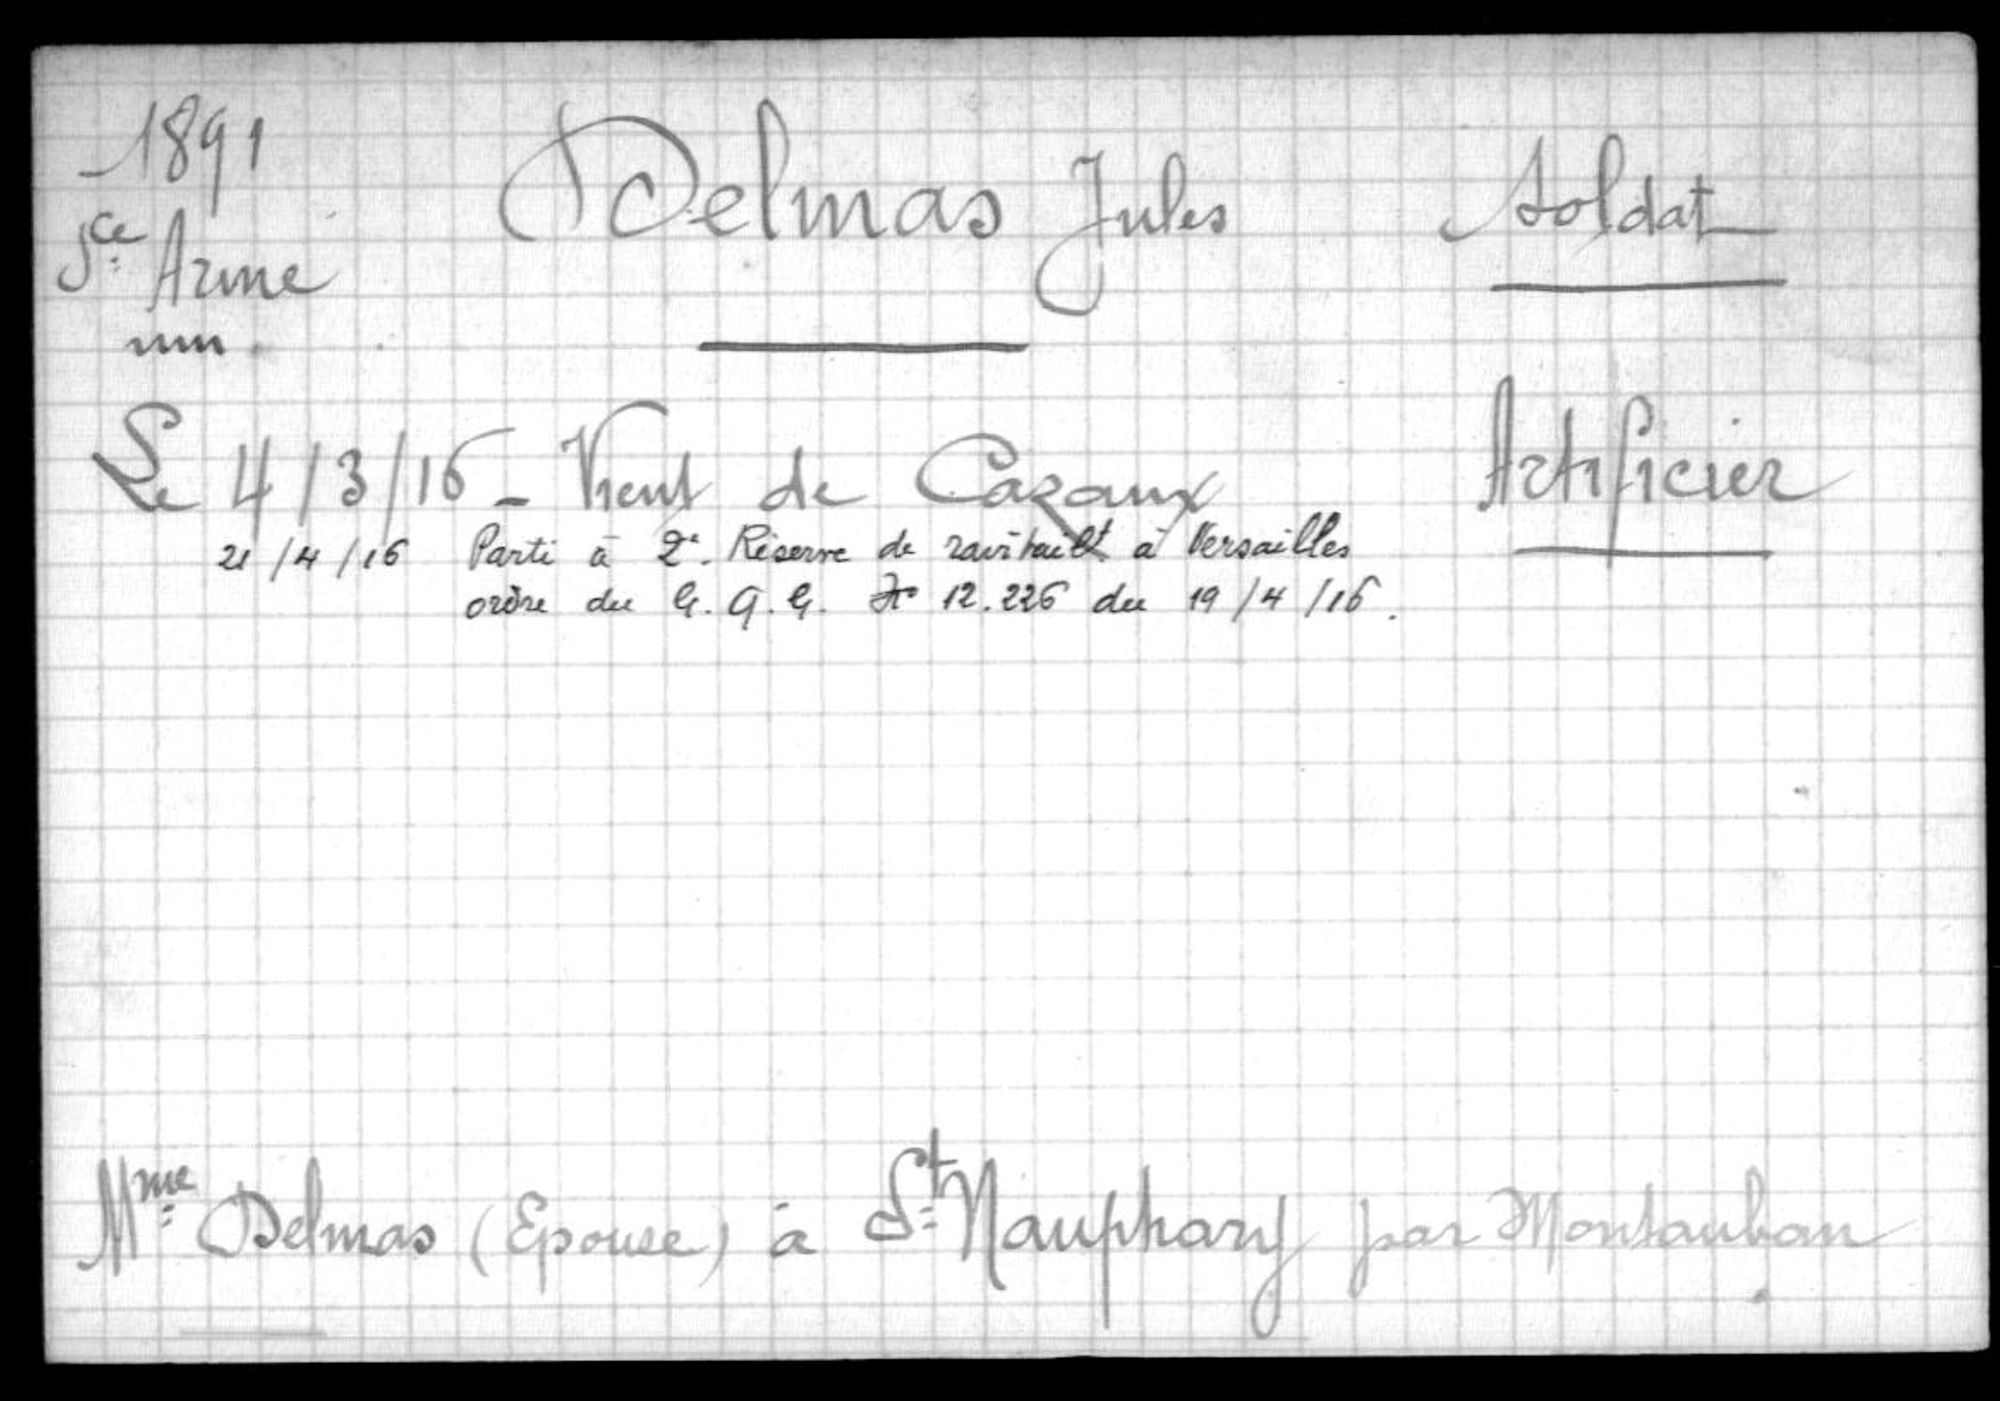 1891 Delmas Jules Soldat
Sce Arme
Le 4/3/16 - Vient de Cazaux Artificier
21/4/16 Parti à 2e. Réserve de ravitailt à Versailles
ordre du G.Q.G. No 12.226 du 19/4/16.
Mme Delmas (Epouse) à St Nauphary par Montauban